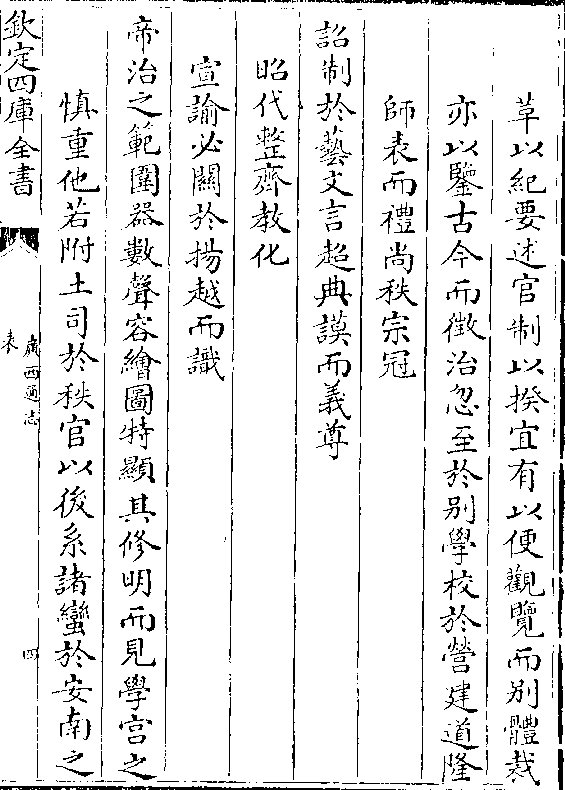 草以紀要述官制以揆宜有以便觀覽而别體裁
亦以鑒古今而徵治忽至於别學校於營建道隆
師表而禮尚秩宗冠
詔制於藝文言超典謨而義尊
昭代整齊教化
宣諭必關於揚越而識
帝治之範圍器數聲容繪圖特顯其修明而見學宫之
慎重他若附土司於秩官以後系諸蠻於安南之
欽定四庫全書
廣西通志
表
四